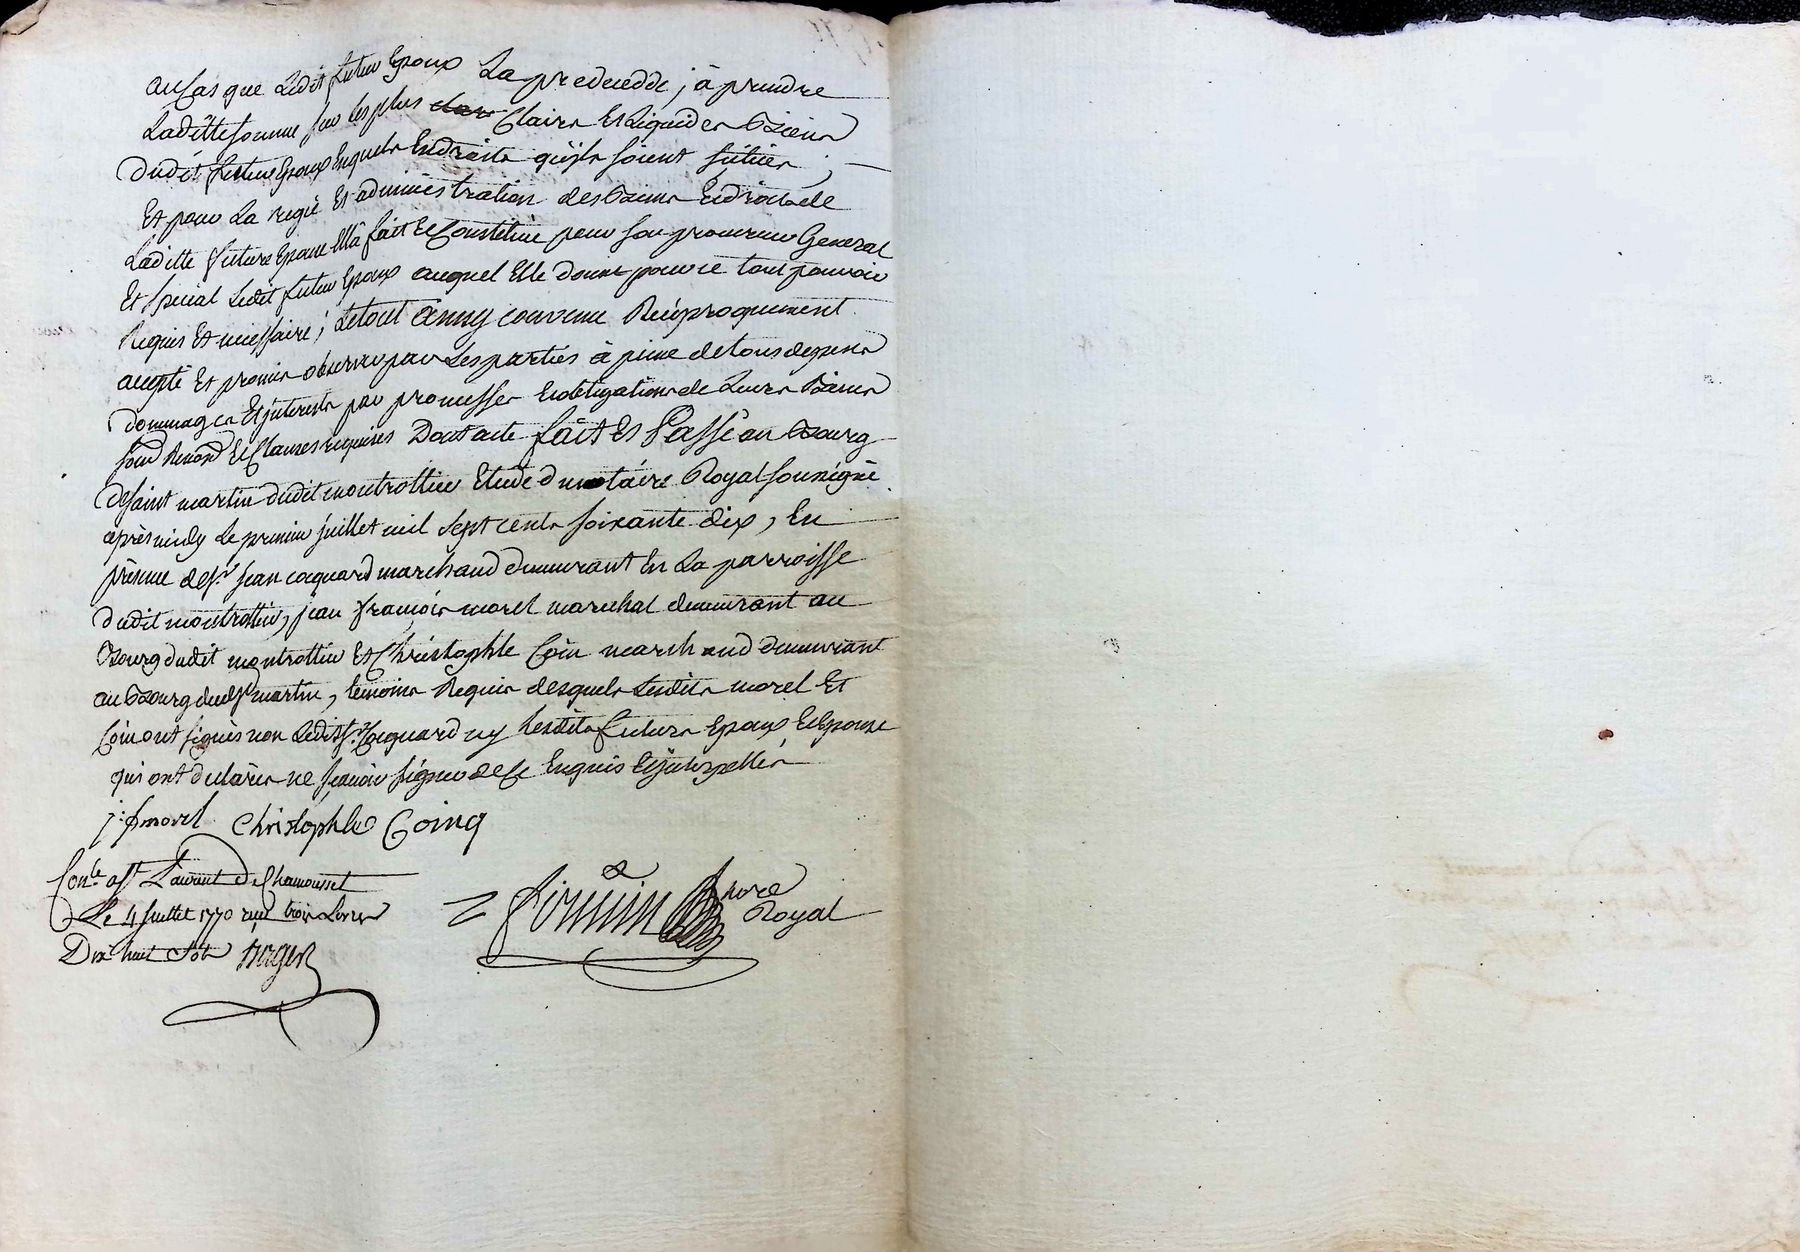 au Cas que Ledit futur Epoux La predecedde, à prendre
Laditte somme sur les plus clairs Et Liquides Biens
dudit futur Epoux Enquels Endroits qu'ils soient situés,
Et pour La regie Et administration des biens Et droits de
Laditte future Epouse Elle à fait Et Constitué pour son procureur General
Et special Ledit futur Epoux auquel Elle donne pouvoir tout pouvoir
Requis Et necessaire, Le tout ainsy convenu Reciproquement
accepté Et promis observer par Les parties à peine de tous depens
dommages Et jnterests par promesses Et obligations de Leurs Biens
sous Renon Et Clauses requises Dont acte fait Et Passé au Bourg
de saint martin dudit montrottier Etude du notaire Royal soussigné
après midy Le premier juillet mil sept cents soixante dix, En
présence de sr jean coquard marchand demeurant En La parroisse
dudit montrottier, jean françois morel marechal demeurant au
Bourg dudit montrottier Et Christophle Coin marchand demeurant
au Bourg dudit st martin, temoins Requis desquels Lesdits morel Et
Coin ont signés non Ledit sr Coquard ny Lesdits futurs Epoux Et Epouse
qui ont declarés ne sçavoir signer de ce Enquis Et jnterpellés
j: f morel Christophle Coing
Conle a st Laurent de Chamousset
Le 4 juillet 1770 reçu trois Livres
Dix huit sols
nore
Royal